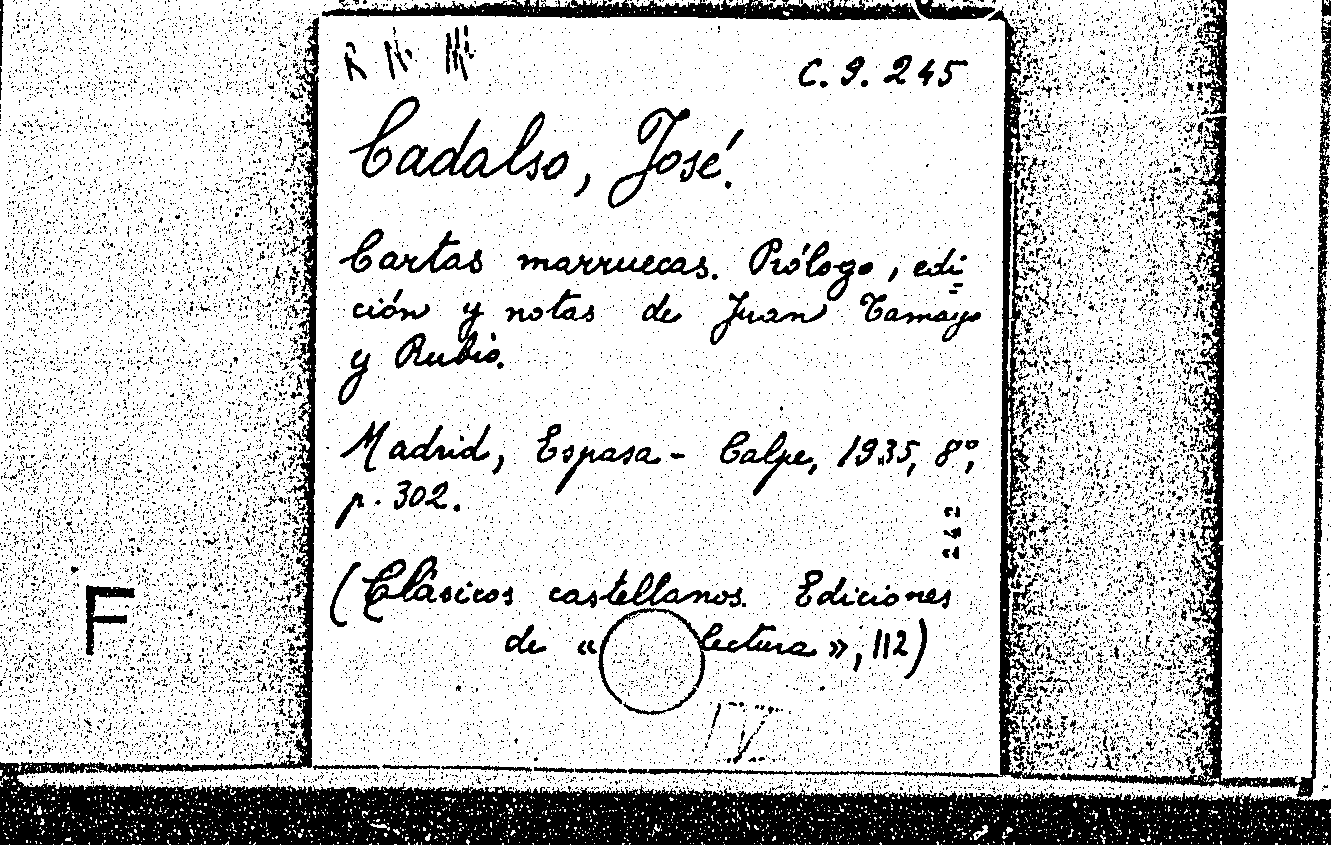 C. 9. 245
Cadalso, José.
Cartas marruecas. Prólogo, edi=
ción y notas de Juan Tamayo
y Rubio.
Madrid, Espasa - Calpe, 1935, 8º,
p. 302.
242
(Clásicos castellanos. Ediciones
de « lectura », 112)
IV
F